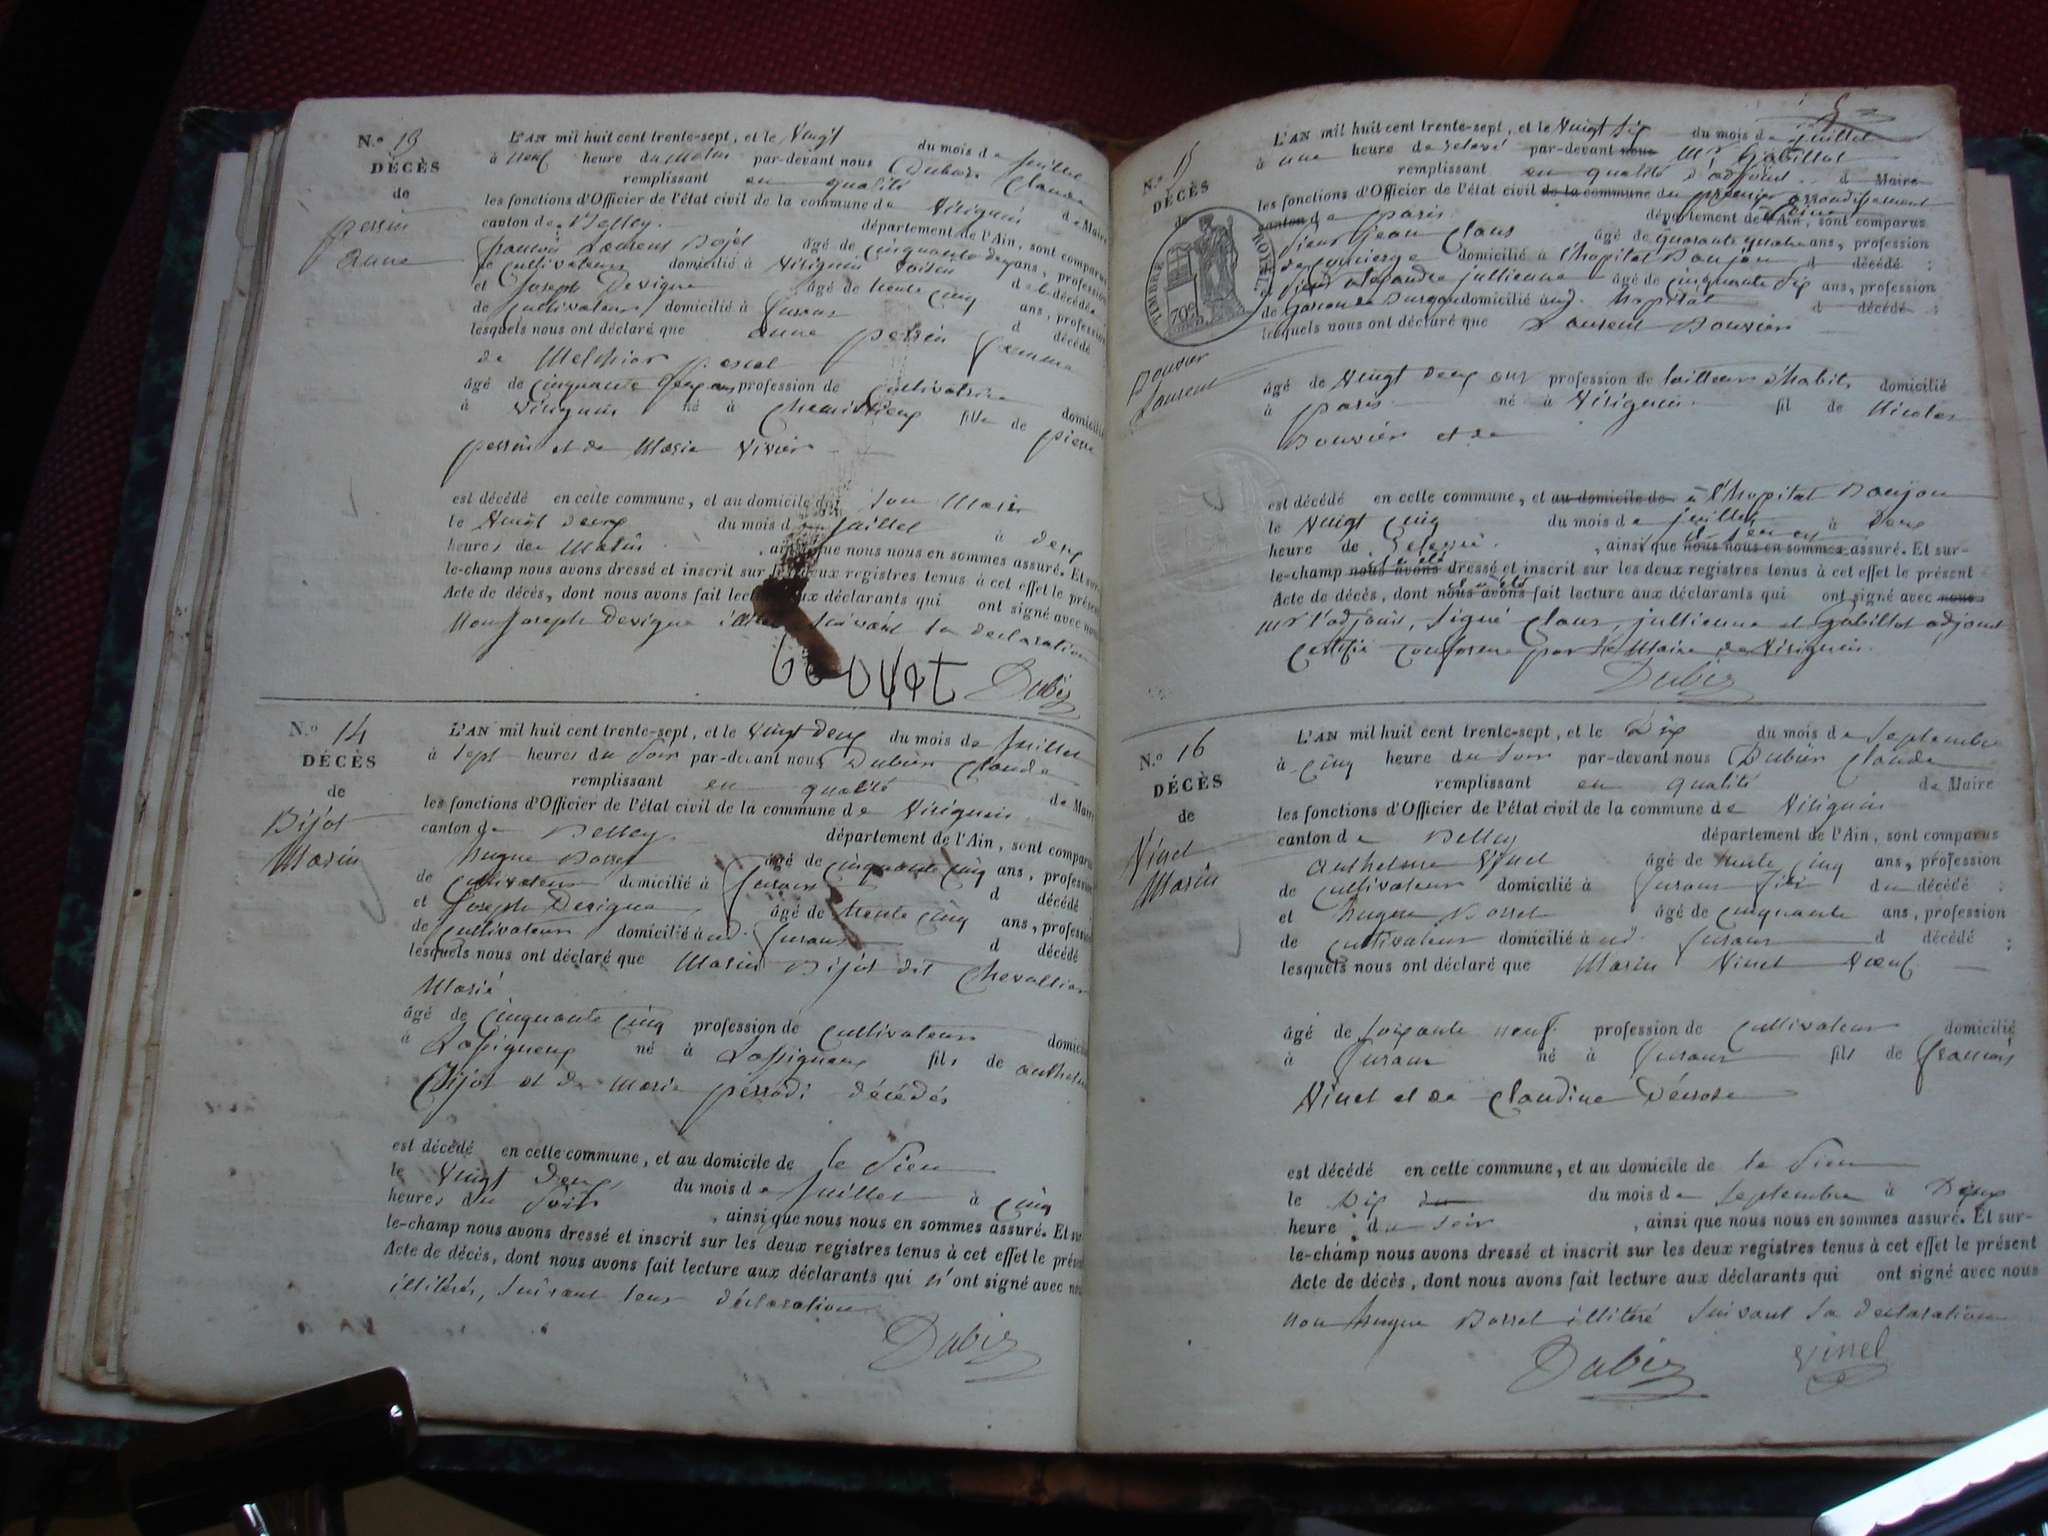 N.o 13
DÉCÈS
de
perrin
anne
L'AN mil huit cent trente-sept, et le Vingt du mois de juillet
à neuf heure du Matin par-devant nous Dubier Claude
remplissant en qualité de Maire
les fonctions d'Officier de l'état civil de la commune de Virignin
canton de Belley département de l'Ain, sont comparus
francois Laurent âgé de cinquante deux ans, profession
de Cultivateur domicilié à Virignin Voisin de la décédée
et Joseph Devigne âgé de trente cinq ans, profession
de Cultivateur domicilié à d décédé
lesquels nous ont déclaré que anne perrin femme
de Melchior
âgé de cinquante deux ans profession de Cultivatrice domicilié
à Virignin né à fille de pierre
perrin et de Marie Vivier
est décédé en cette commune, et au domicile de son Mari
le Vingt deux du mois de juillet à deux
heures de Matin , ainsi que nous nous en sommes assuré. Et sur-
le-champ nous avons dressé et inscrit sur les deux registres tenus à cet effet le présent
Acte de décès, dont nous avons fait lecture aux déclarants qui ont signé avec nous
Non Joseph Devigne suivant sa declaration
Dubier
N.o 14
DÉCÈS
de
Bijot
Marin
L'AN mil huit cent trente-sept, et le Vingt deux du mois de Juillet
à sept heures du soir par-devant nous Dubier Claude
remplissant en qualité de Maire
les fonctions d'Officier de l'état civil de la commune de Virignin
canton de Belley département de l'Ain, sont comparus
hugue Borret âgé de cinquante cinq ans, profession
de Cultivateur domicilié à d décédé
et Joseph Devigne âgé de trente cinq ans, profession
de Cultivateur domicilié à ud. d décédé
lesquels nous ont déclaré que Marin Bijot dit Chevallier
Marié
âgé de cinquante cinq profession de Cultivateur domicilié
à Lassigneux né à Lassigneux fils de anthelme
Bijot et de Marie perrodi décédés
est décédé en cette commune, et au domicile de le sien
le Vingt deux du mois de Juillet à cinq
heures du soir , ainsi que nous nous en sommes assuré. Et sur-
le-champ nous avons dressé et inscrit sur les deux registres tenus à cet effet le présent
Acte de décès, dont nous avons fait lecture aux déclarants qui n'ont signé avec nous
illitérés, suivant leur déclaration
Dubier
N.o 15
DÉCÈS
de
TIMBRE ROYAL
70c
Bouvier
Laurent
L'AN mil huit cent trente-sept, et le Vingt six du mois de juillet
à une heure de relevé par-devant nous Mr Gabillot
remplissant en qualité d'adjoint d Maire
les fonctions d'Officier de l'état civil de la commune du premier arrondissement
canton de paris département de l'Ain, sont comparus
sieur jean Claus âgé de quarante quatre ans, profession
de concierge domicilié à l'hopital Beaujon d décédé ;
et sieur alexandre jullienne âgé de cinquante six ans, profession
de Garcon de Bureau domicilié à ud. hopital d décédé ;
lesquels nous ont déclaré que Laurent Bouvier
âgé de Vingt deux ans profession de tailleur d'habits domicilié
à paris né à Virignin fil de Nicolas
Bouvier et de
est décédé en cette commune, et au domicile de à l'hopital Beaujon
le Vingt cinq du mois de juillet à deux
heure de relevé , ainsi que nous nous en sommes assuré. Et sur-
le-champ nous avons dressé et inscrit sur les deux registres tenus à cet effet le présent
Acte de décès, dont nous avons fait lecture aux déclarants qui ont signé avec nous
Mr l'adjoint, signé Claus, jullienne et Gabillot adjoint
Certifié conforme par le Maire de Virignin
Dubier
N.o 16
DÉCÈS
de
Vinet
Marin
L'AN mil huit cent trente-sept, et le Dix du mois de Septembre
à cinq heure du soir par-devant nous Dubier Claude
remplissant en qualité de Maire
les fonctions d'Officier de l'état civil de la commune de Virignin
canton de Belley département de l'Ain, sont comparus
anthelme Vinet âgé de trente cinq ans, profession
de cultivateur domicilié à fils du décédé ;
et hugue Borret âgé de cinquante ans, profession
de cultivateur domicilié à ud. d décédé ;
lesquels nous ont déclaré que Marin Vinet Vœuf
âgé de soixante neuf profession de cultivateur domicilié
à né à fils de francois
Vinet et de Claudine
est décédé en cette commune, et au domicile de le sien
le Dix du mois de Septembre à Deux
heure du soir , ainsi que nous nous en sommes assuré. Et sur-
le-champ nous avons dressé et inscrit sur les deux registres tenus à cet effet le présent
Acte de décès, dont nous avons fait lecture aux déclarants qui ont signé avec nous
non hugue Borret illitéré suivant sa declaration
Dubier Vinel